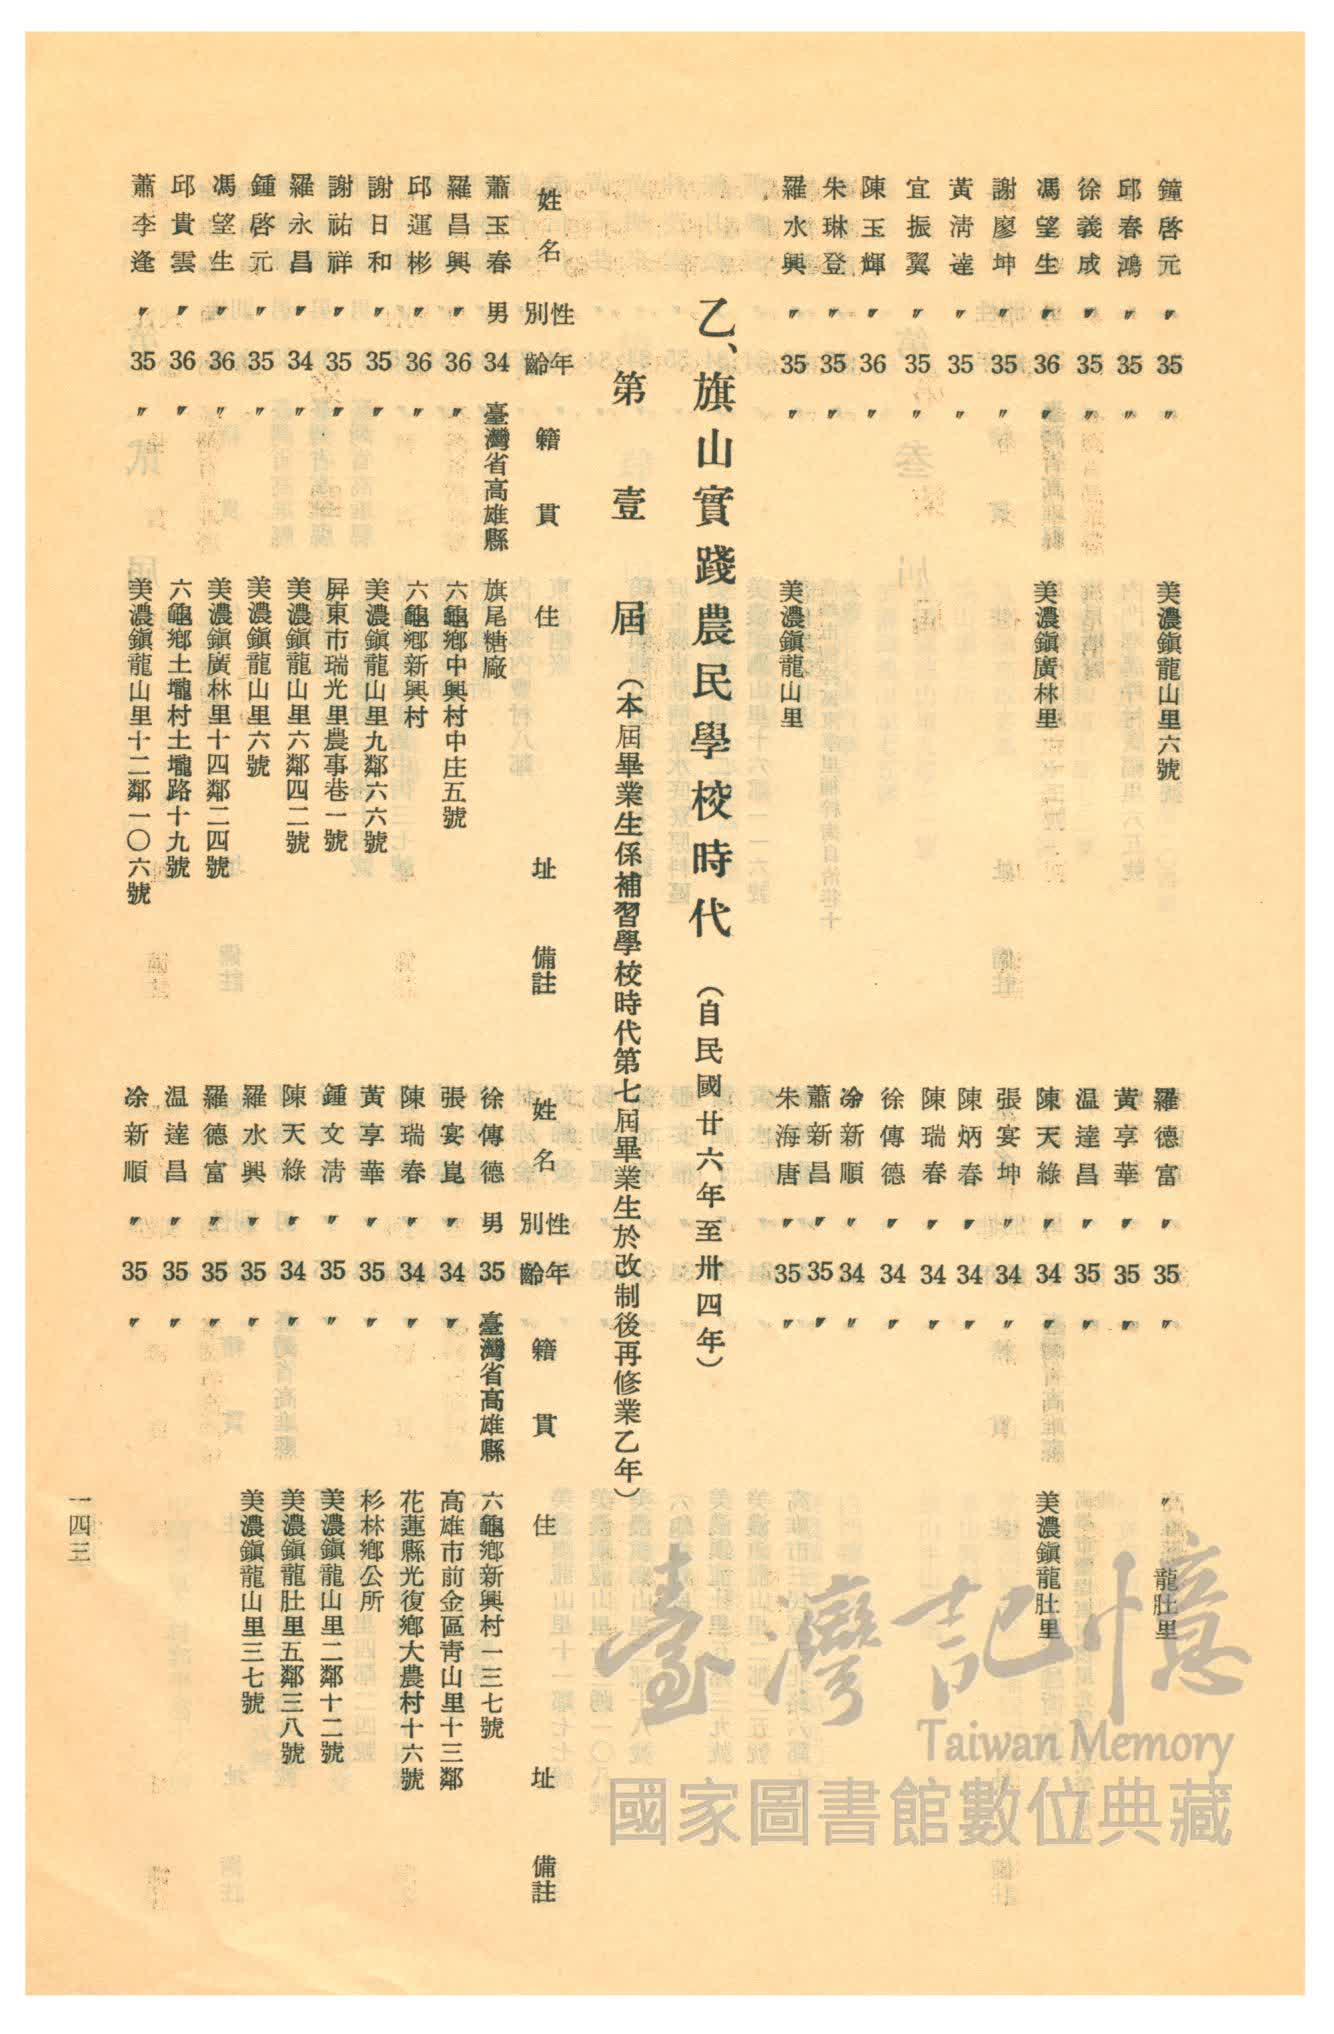 鐘啓元 〃 35 〃 美濃鎭龍山里六號
邱春鴻 〃 35 〃
徐義成 〃 35 〃
馮望生 〃 36 〃 美濃鎭廣林里
謝廖坤 〃 35 〃
黃淸達 〃 35 〃
宜振翼 〃 35 〃
陳玉輝 〃 36 〃
朱琳登 〃 35 〃
羅水興 〃 35 〃 美濃鎭龍山里
羅德富 〃 35 〃 〃 龍肚里
黃享華 〃 35 〃
温達昌 〃 35 〃
陳天綠 〃 34 〃 美濃鎭龍肚里
張宴坤 〃 34 〃
陳炳春 〃 34 〃
陳瑞春 〃 34 〃
徐傳德 〃 34 〃
凃新順 〃 34 〃
蕭新昌 〃 35 〃
朱海唐 〃 35 〃
乙、旗山實踐農民學校時代 （自民國廿六年至卅四年）
第壹屆 （本屆畢業生係補習學校時代第七屆畢業生於改制後再修業乙年）
姓名 性別 年齡 籍貫 住址 備註
蕭玉春 男 34 臺灣省高雄縣 旗尾糖廠
羅昌興 〃 36 〃 六龜鄉中興村中庄五號
邱運彬 〃 36 〃 六龜鄉新興村
謝日和 〃 35 〃 美濃鎭龍山里九鄰六六號
謝祐祥 〃 35 〃 屏東市瑞光里農事巷一號
羅永昌 〃 34 〃 美濃鎭龍山里六鄰四二號
鍾啓元 〃 35 〃 美濃鎭龍山里六號
馮望生 〃 36 〃 美濃鎭廣林里十四鄰二四號
邱貴雲 〃 36 〃 六龜鄉土壠村土壠路十九號
蕭李逢 〃 35 〃 美濃鎭龍山里十二鄰一〇六號
姓名 性別 年齡 籍貫 住址 備註
徐傳德 男 35 臺灣省高雄縣 六龜鄉新興村一三七號
張宴崑 〃 34 〃 高雄市前金區靑山里十三鄰
陳瑞春 〃 34 〃 花蓮縣光復鄉大農村十六號
黃享華 〃 35 〃 杉林鄉公所
鍾文淸 〃 35 〃 美濃鎭龍山里二鄰十二號
陳天綠 〃 34 〃 美濃鎭龍肚里五鄰三八號
羅水興 〃 35 〃 美濃鎭龍山里三七號
羅德富 〃 35 〃
温達昌 〃 35 〃
凃新順 〃 35 〃
一四三
臺灣記憶
Taiwan Memory
國家圖書館數位典藏